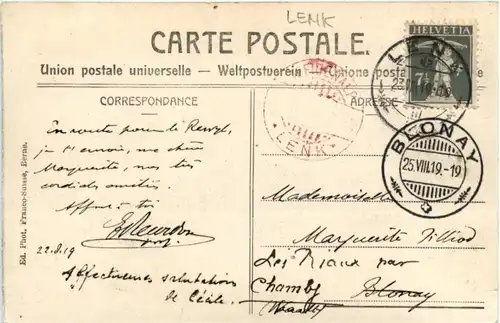 LENK
CARTE POSTALE.
Union postale universelle. — Weltpostverein. — Unione postale
CORRESPONDANCE
ADRESSE
HELVETIA
7½
LENK
LENK
BLONAY
25.VIII.19.-19
En route pour le Rawyl,
je t'envoie, ma chère
Marguerite, mes très
cordiales amitiés.
Affectueuses salutations
de Cécile.
22.8.19
Mademoiselle
Marguerite
Les Riaux par
Chamby Blonay
(Vaud)
Ed. Phot. Franco-Suisse, Berne.